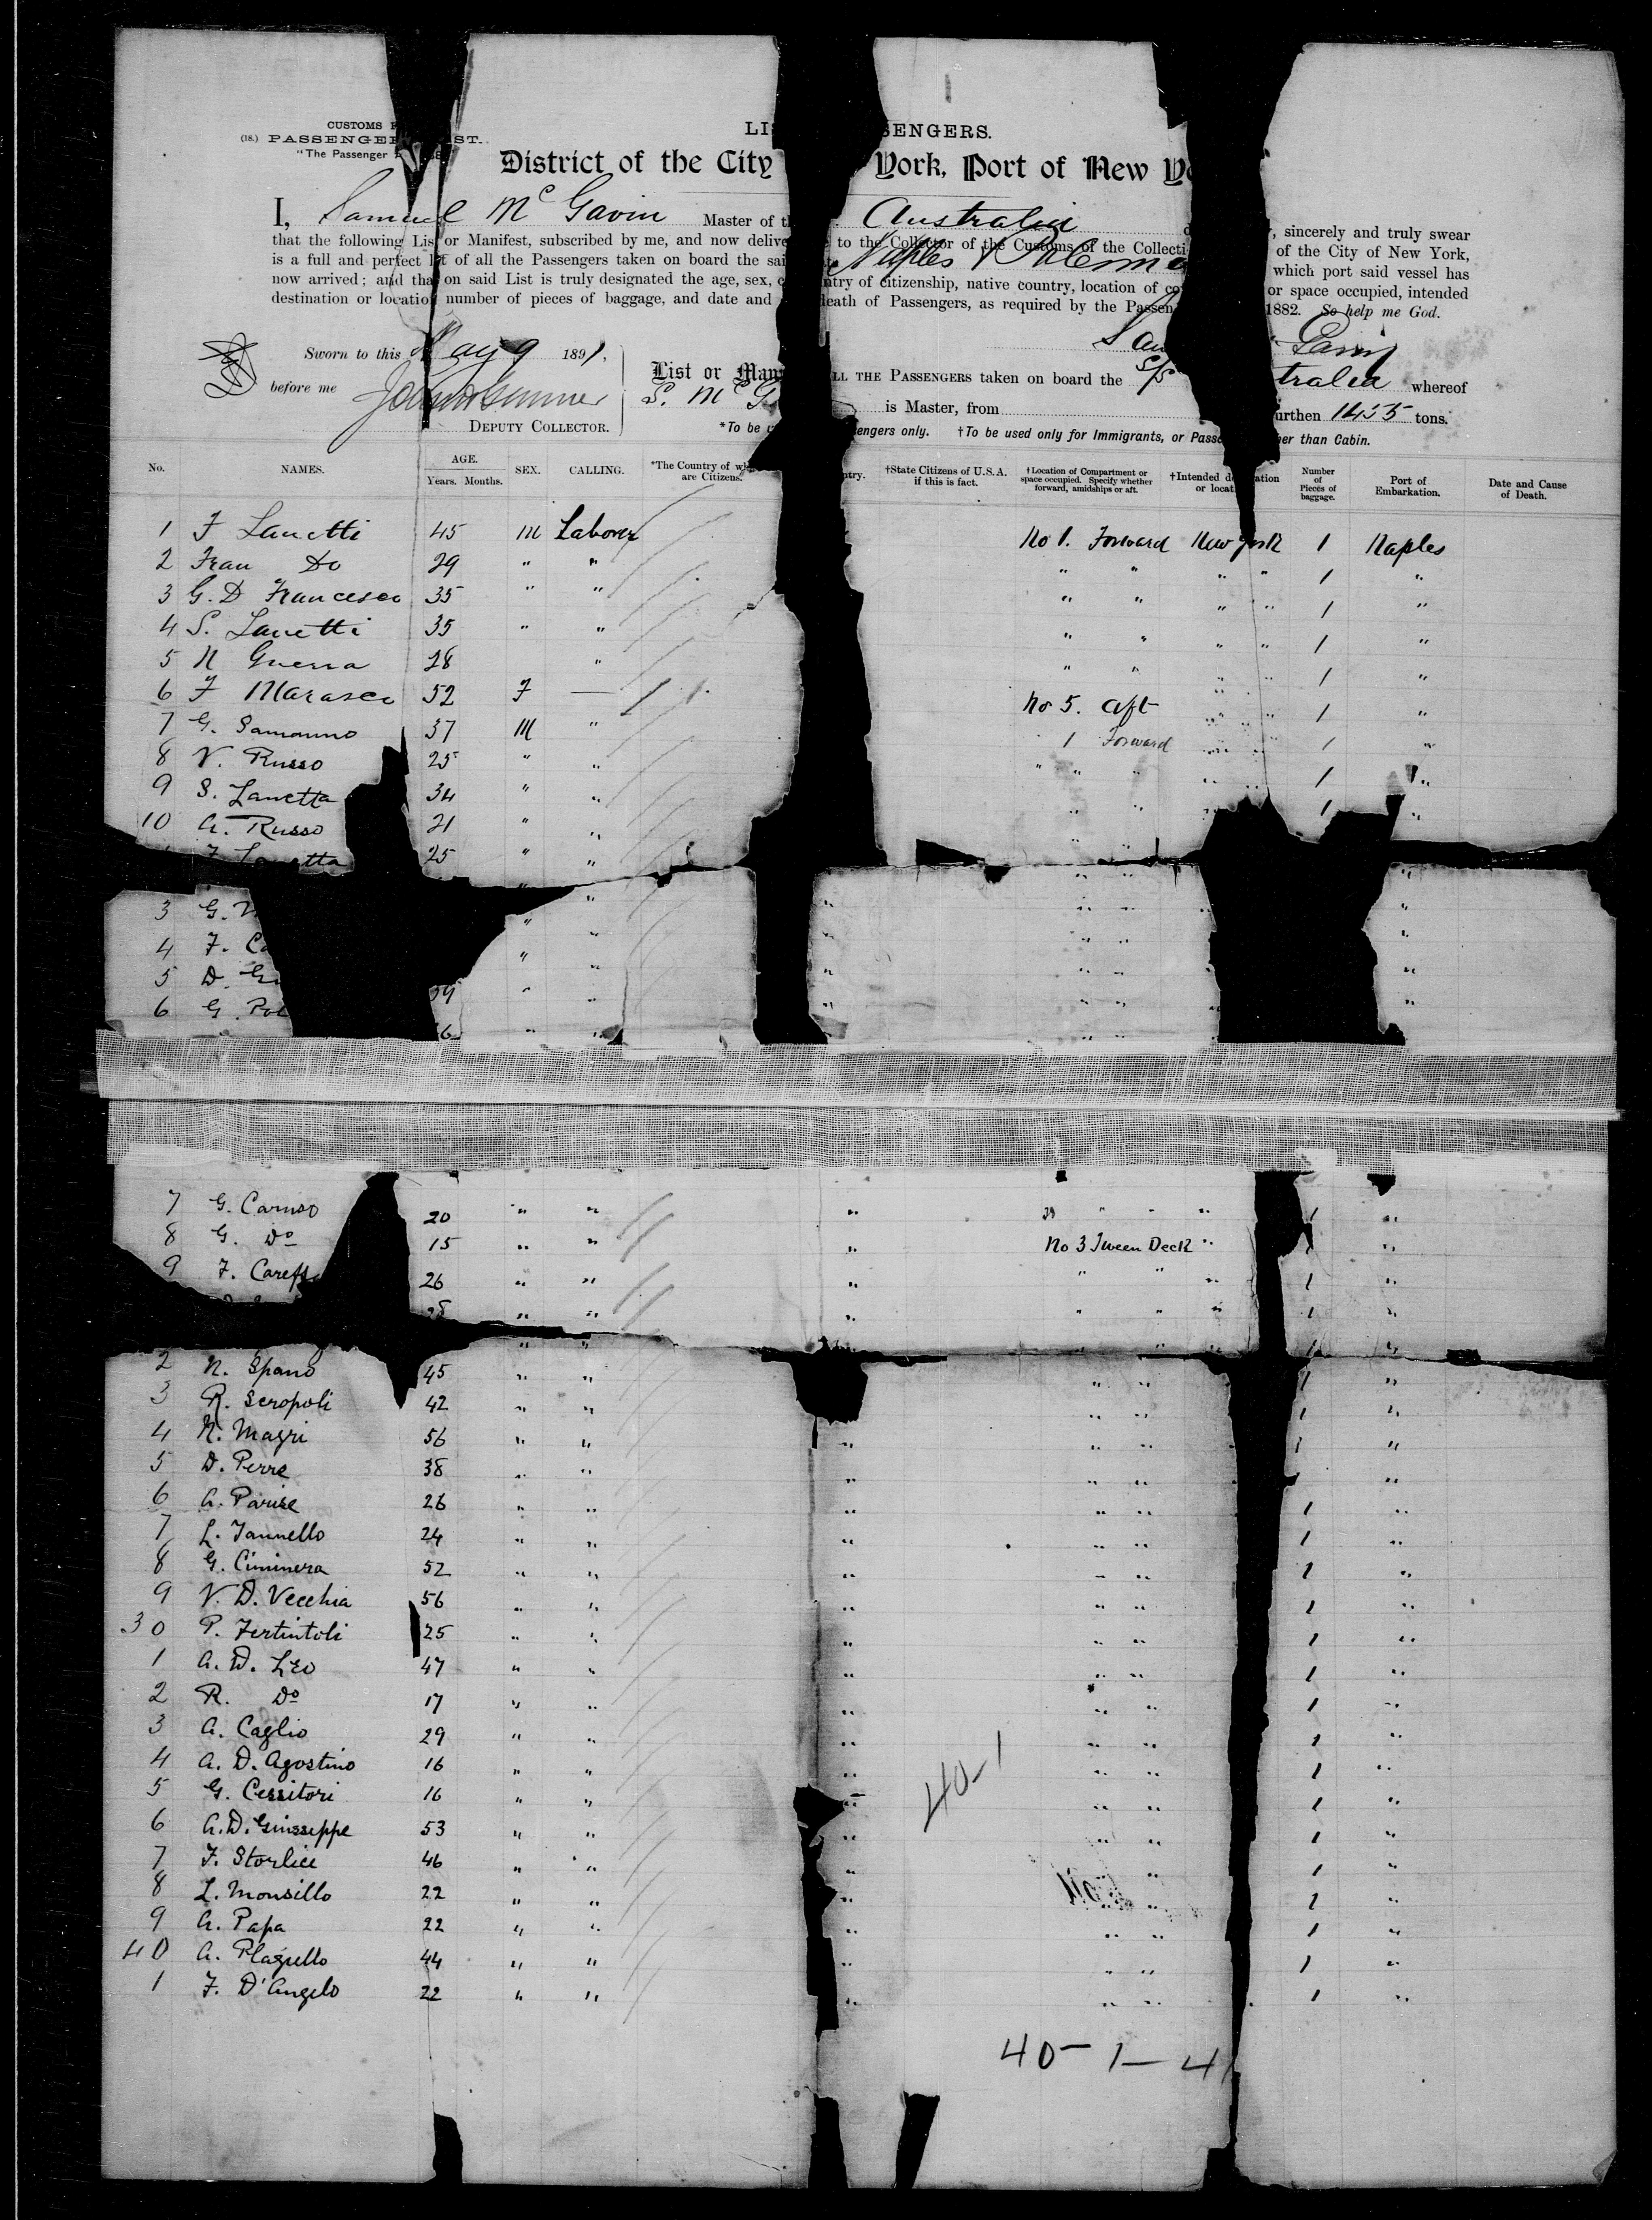 CUSTOMS
(18.) PASSENGER LIST.
"The Passenger
LIS SENGERS.
District of the City York, Port of New Yo
I, Samuel McGavin Master of t Australia
that the following List or Manifest, subscribed by me, and now delive to the Collector of the Customs of the Collecti , sincerely and truly swear
is a full and perfect list of all the Passengers taken on board the sai Naples & Palermo of the City of New York,
now arrived; and that on said List is truly designated the age, sex, c ntry of citizenship, native country, location of co which port said vessel has
destination or location number of pieces of baggage, and date and death of Passengers, as required by the Passen or space occupied, intended
1882. So help me God.
Sworn to this May 9 1891,
before me
DEPUTY COLLECTOR.
List or Man ALL THE PASSENGERS taken on board the S/S tralia whereof
S. McG is Master, from urthen 1455 tons.
*To be u engers only. †To be used only for Immigrants, or Passe her than Cabin.
No. NAMES. AGE. Years. Months. SEX. CALLING. *The Country of wh are Citizens. ntry. †State Citizens of U.S.A. if this is fact. †Location of Compartment or space occupied. Specify whether forward, amidships or aft. †Intended de ation or locat Number of Pieces of baggage. Port of Embarkation. Date and Cause of Death.
1 F Lanetti 45 M Laborer No 1. Forward New York 1 Naples
2 Fran Do 29 " " " " " " 1 "
3 G. D Francesco 35 " " " " " " 1 "
4 S. Lanetti 35 " " " " " " 1 "
5 N Guerra 28 " " " " " 1 "
6 F Marasco 52 F — No 5. Aft " " 1 "
7 G. Samanno 37 M " 1 Forward " " 1 "
8 V. Russo 25 " " " " " " " 1 "
9 S. Lanetta 34 " " " " 1 "
10 A. Russo 21 " " " "
F Lanetta 25 " " " " "
3 G. " " " " " "
4 F. Ca " " " " "
5 D. Gu 39 " " " " " "
6 G. Pol 6 " " " " " "
7 G. Caruso 20 " " " " " " 1 "
8 G. Do 15 " " " No 3 Tween Deck " "
9 F. Careff 26 " " " " " " 1 "
28 " " " " " " 1 "
2 N. Spano 45 " " " " 1 "
3 R. Seropoli 42 " " " " 1 "
4 N. Magri 56 " " " " " 1 "
5 D. Perre 38 " " " " " "
6 A. Parise 26 " " " " " 1 "
7 L. Iannello 24 " " " " " 1 "
8 G. Ciminera 52 " " " " " 1 "
9 V. D. Vecchia 56 " " " " " 1 "
30 P. Fertintoli 25 " " " " " 1 "
1 A. D. Leo 47 " " " " " 1 "
2 R. Do 17 " " " " " 1 "
3 A. Caglio 29 " " " " " 1 "
4 A. D. Agostino 16 " " " " " 1 "
5 G. Cessitori 16 " " " " " 1 "
6 A. D. Guisseppe 53 " " " " " 1 "
7 F. Storlici 46 " " " " 1 "
8 L. Monsillo 22 " " " " " 1 "
9 A. Papa 22 " " " " " 1 "
40 A. Plagiello 44 " " " " " 1 "
1 F. D'Angelo 22 " " " " " 1 "
40-1
40-1-41